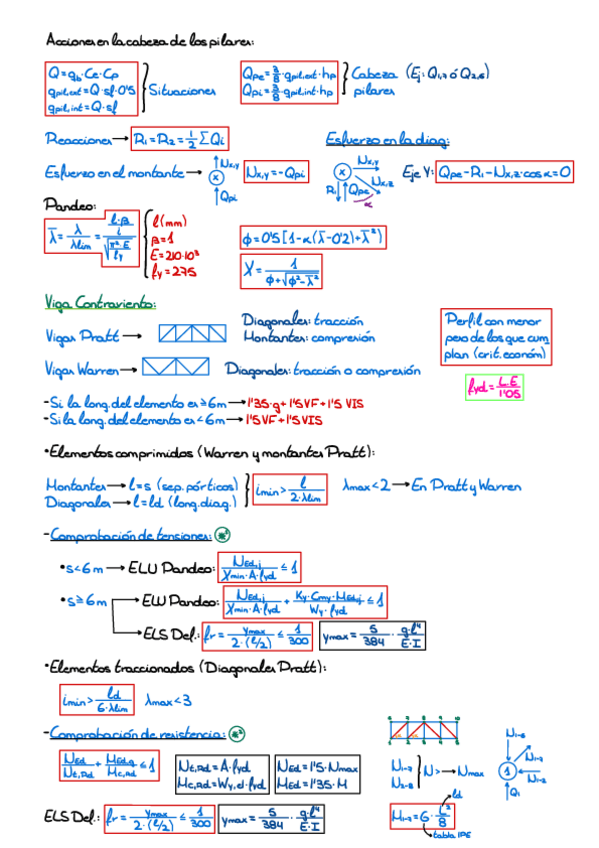 Acciones en la cabeza de los pilares:
Q = q_b·Ce·Cp
q_pil,ext = Q·sf·0'5
q_pil,int = Q·sf
Situaciones
Q_pe = 3/8·q_pil,ext·h_p
Q_pi = 3/8·q_pil,int·h_p
Cabeza pilares
(Ej: Q_1,7 ó Q_2,6)
Reacciones → R_1 = R_2 = 1/2 ΣQ_i
Esfuerzo en la diag:
Esfuerzo en el montante →
N_x,y
x
Q_pi
N_x,y = -Q_pi
N_x,y
x
N_x,z
R_1
Q_pe
α
Eje Y: Q_pe - R_1 - N_x,z·cos α = 0
Pandeo:
λ̄ = λ/λlim = (l·β/i)/√(π²·E/fy)
l (mm)
β = 1
E = 210·10³
fy = 275
ϕ = 0'5[1-α(λ̄-0'2)+λ̄²)
χ = 1/(ϕ+√(ϕ²-λ̄²))
Viga Contraviento:
Vigas Pratt →
Diagonales: tracción
Montantes: compresión
Vigas Warren →
Diagonales: tracción o compresión
Perfil con menor
peso de los que cum
plan (crit. económ)
fyd = L.E/1'05
- Si la long. del elemento es ≥ 6m → 1'35·g + 1'5 VF + 1'5 VIS
- Si la long. del elemento es < 6m → 1'5 VF + 1'5 VIS
• Elementos comprimidos (Warren y montantes Pratt):
Montantes → l = s (sep. pórticos)
Diagonales → l = ld (long. diag.)
imin > l/(2·λlim)
λmax < 2 → En Pratt y Warren
- Comprobación de tensiones:
• s < 6m → ELU Pandeo: N_Ed,j/(χmin·A·fyd) ≤ 1
• s ≥ 6m → ELU Pandeo: N_Ed,j/(χmin·A·fyd) + Ky·Cmy·M_Ed,j/(Wy·fyd) ≤ 1
→ ELS Def.: fr = ymax/(2·(l/2)) ≤ 1/300
ymax = 5/384·q·l⁴/(E·I)
• Elementos traccionados (Diagonales Pratt):
imin > ld/(6·λlim)
λmax < 3
- Comprobación de resistencia:
N_Ed/N_t,Rd + M_Ed,g/M_c,Rd ≤ 1
N_t,Rd = A·fyd
M_c,Rd = Wy,el·fyd
N_Ed = 1'5·Nmax
M_Ed = 1'35·M
N_1-7
N_2-8
N> → Nmax
N_1-8
N_1-7
1
N_1-2
Q_1
ELS Def.: fr = ymax/(2·(l/2)) ≤ 1/300
ymax = 5/384·q·l⁴/(E·I)
ld
M_1-7 = G·L²/8
tabla IPE